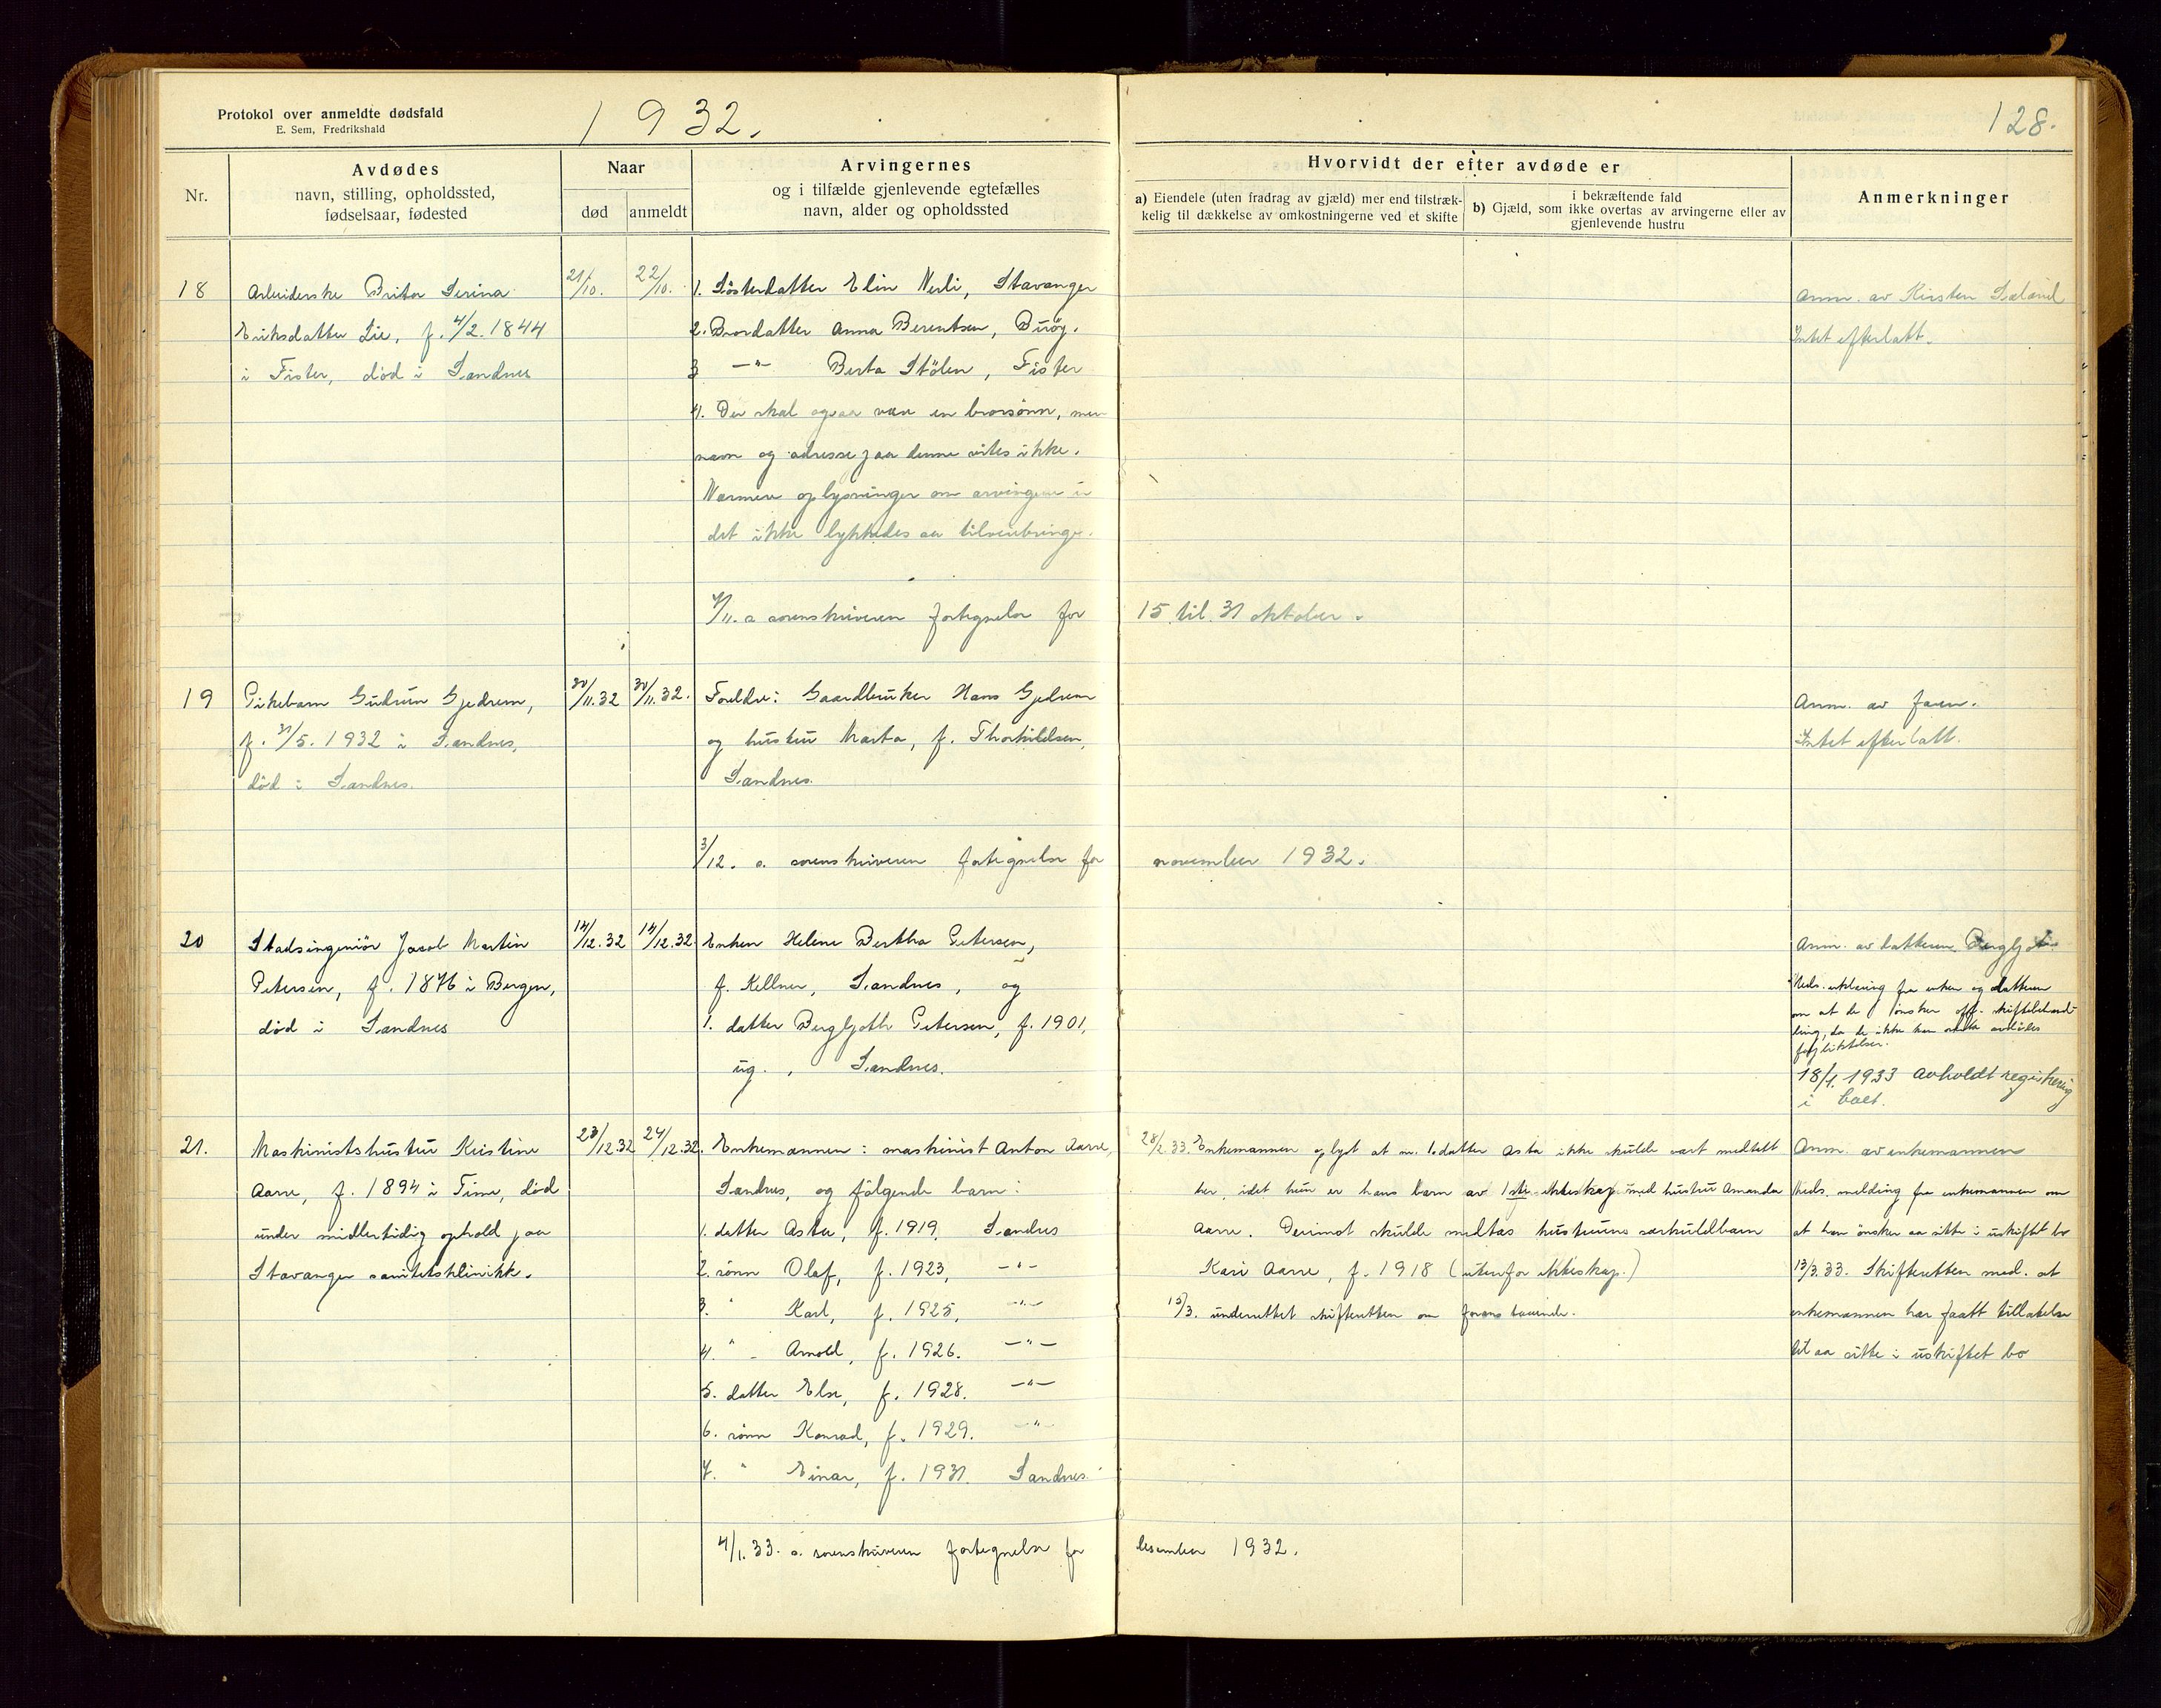 Protokol over anmeldte dødsfald
E. Sem, Fredrikshald
1932.
128.
Nr.
Avdødes
navn, stilling, opholdssted,
fødselsaar, fødested
Naar
død
anmeldt
Arvingernes
og i tilfælde gjenlevende egtefælles
navn, alder og opholdssted
Hvorvidt der efter avdøde er
a) Eiendele (uten fradrag av gjæld) mer end tilstræk-
kelig til dækkelse av omkostningerne ved et skifte
i bekræftende fald
b) Gjæld, som ikke overtas av arvingerne eller av
gjenlevende hustru
Anmerkninger
18
Arbeiderske Brita Serina
Eriksdatter Lie, f. 4/2. 1844
i Fister, död i Sandnes
21/10.
22/10.
1. Sösterdatter Elin Nerli, Stavanger
2. Brordatter Anna Berentsen, Buöy.
3 —"— Berta Stölen, Fister
4. Der skal ogsaa være en brorsönn, men
navn og adresse paa denne vites ikke.
Nærmere oplysninger om arvingene er
det ikke lykkedes aa tilveiebringe.
Anm. av Kirsten Sæland
Intet efterlatt.
4/11. a sorenskriveren fortegnelse for
15 til 31 oktober.
19
Pikebarn Gudrun Gjedrem,
f. 31/5. 1932 i Sandnes,
död i Sandnes.
30/11.32
30/11.32.
Foreldre: Gaardbruker Hans Gjedrem
og hustru Marta, f. Thorkildsen,
Sandnes.
Anm. av faren.
Intet efterlatt.
3/12. a. sorenskriveren fortegnelse for
november 1932.
20
Stadsingeniör Jacob Martin
Petersen, f. 1876 i Bergen,
död i Sandnes
14/12.32
14/12.32
Enken Helene Bertha Petersen,
f. Kellner, Sandnes, og
1. datter Bergljoth Petersen, f. 1901,
ug., Sandnes.
Anm. av datteren Bergljot
Meds. erklæring fra enken og datteren
om at de önsker off. skiftebehand-
ling, da de ikke kan overta avdödes
forpliktelser.
18/1. 1933 avholdt registrering
i boet.
21.
Maskinistshustru Kristine
Aarre, f. 1894 i Time, död
under midlertidig ophold paa
Stavanger sanitetsklinikk.
23/12.32
24/12.32.
Enkemannen: maskinist Anton Aarre,
Sandnes, og fölgende barn:
1. datter Asta, f. 1919, Sandnes
2. sönn Olaf, f. 1923, —"—
3. " Karl, f. 1925, —"—
4. " Arnold, f. 1926. —"—
5. datter Else, f. 1928. —"—
6. sönn Konrad, f. 1929. —"—
7. " Einar, f. 1931. Sandnes.
28/2.33. Enkemannen oplyst at nr. 1. datter Asta ikke skulde vært medtatt
her, idet hun er hans barn av 1ste ekteskap med hustru Amanda
Aarre. Derimot skulde medtas hustruens særkuldbarn
Kari Aarre, f. 1918 (utenfor ekteskap.)
13/3. underrettet skifteretten om foranstaaende.
Anm. av enkemannen
Meds. melding fra enkemannen om
at han önsker aa sitte i uskiftet bo
13/3.33. Skifteretten med. at
enkemannen har faatt tillatelse
til aa sitte i uskiftet bo
4/1.33. a. sorenskriveren fortegnelse for
desember 1932.